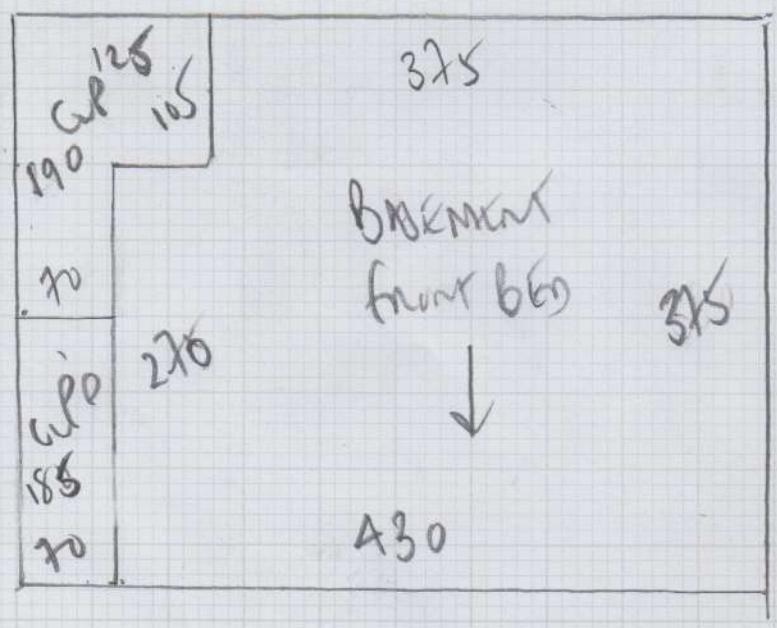 125
CUP 105
375
190
70
BASEMENT
FRONT BED
375
270
CUPD
185
70
430